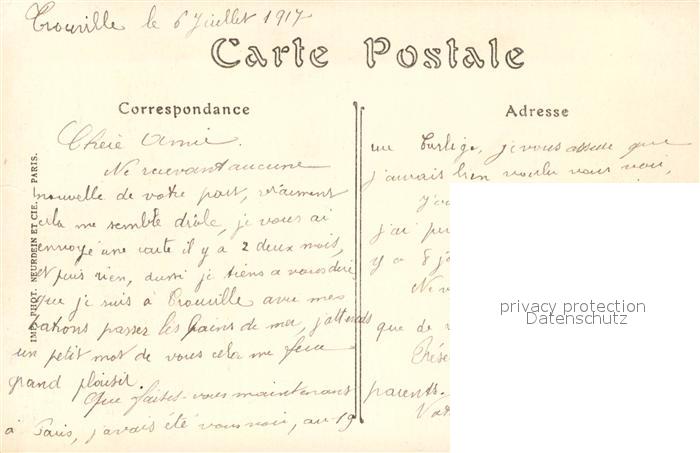 Trouville le 6 Juillet 1917
Carte Postale
Correspondance
Adresse
IMP. PHOT. NEURDEIN ET CIE. PARIS.
Chère Amie.
Ne recevant aucune
nouvelle de votre part, vraiment
cela me semble drôle, je vous ai
envoyé une carte il y a 2 deux mois,
et puis rien, aussi je tiens a vous dire
que je suis à Trouville avec mes
patrons passer les bains de mer, j'attends
un petit mot de vous cela me fera
grand plaisir.
Que faites-vous maintenant
à Paris, j'avais été vous voir, au 19
rue Turbigo, je vous assure que
j'aurais bien voulu vous voir,
j'ai
y a 8
Ne
que de
parents.
privacy protection
Datenschutz